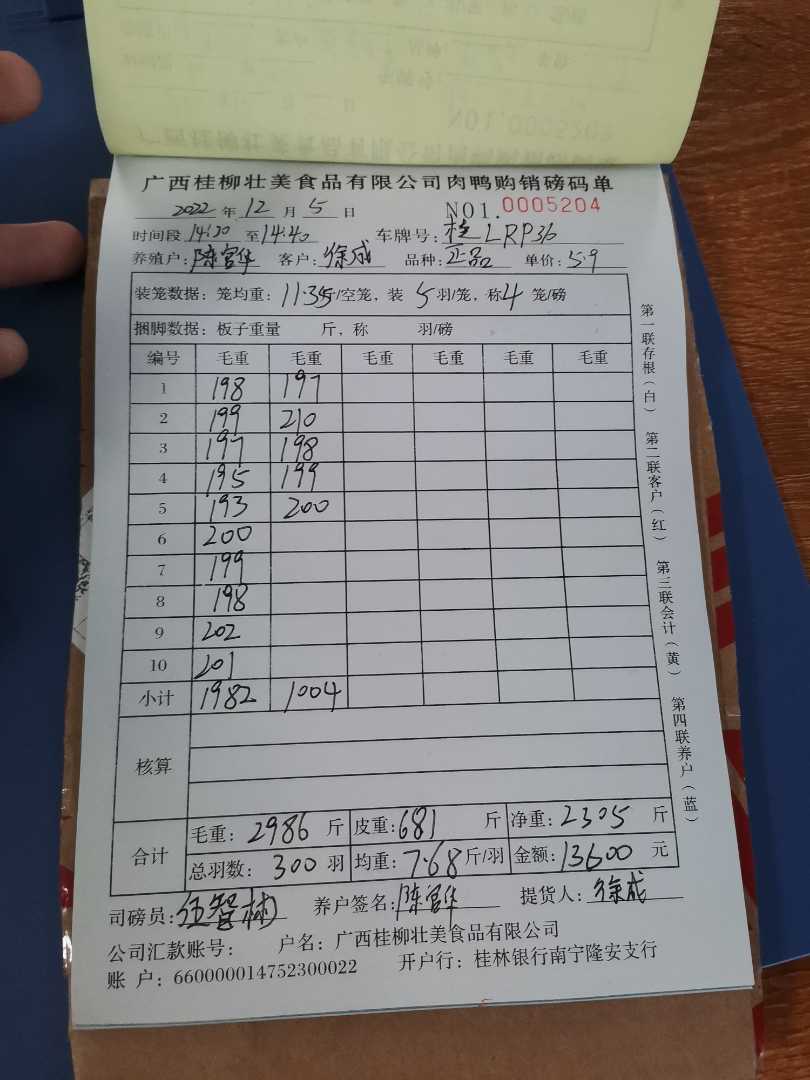 广西桂柳壮美食品有限公司肉鸭购销磅码单
2022 年 12 月 5 日 NO1. 0005204
时间段 14:20 至 14:40 车牌号: 桂LRP36
养殖户: 陈富华 客户: 徐成 品种: 正品 单价: 5.9
装笼数据: 笼均重: 11.35斤/空笼, 装 5 羽/笼, 称 4 笼/磅
捆脚数据: 板子重量 斤, 称 羽/磅
编号 毛重 毛重 毛重 毛重 毛重 毛重
1 198 197
2 199 210
3 197 198
4 195 199
5 193 200
6 200
7 199
8 198
9 202
10 201
小计 1982 1004
核算
合计
毛重: 2986 斤 皮重: 681 斤 净重: 2305 斤
总羽数: 300 羽 均重: 7.68 斤/羽 金额: 13600 元
司磅员: 伍智林 养户签名: 陈富华 提货人: 徐成
公司汇款账号: 户名: 广西桂柳壮美食品有限公司
账 户: 660000014752300022 开户行: 桂林银行南宁隆安支行
第一联存根(白) 第二联客户(红) 第三联会计(黄) 第四联养户(蓝)